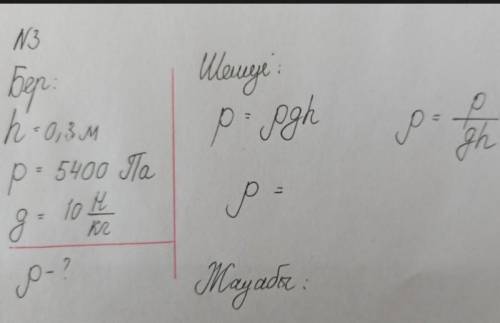 N3
Бер:
h = 0,3 м
p = 5400 Па
g = 10 Н/кг
ρ - ?
Шешуі:
p = ρgh
ρ = p/gh
ρ =
Жауабы: